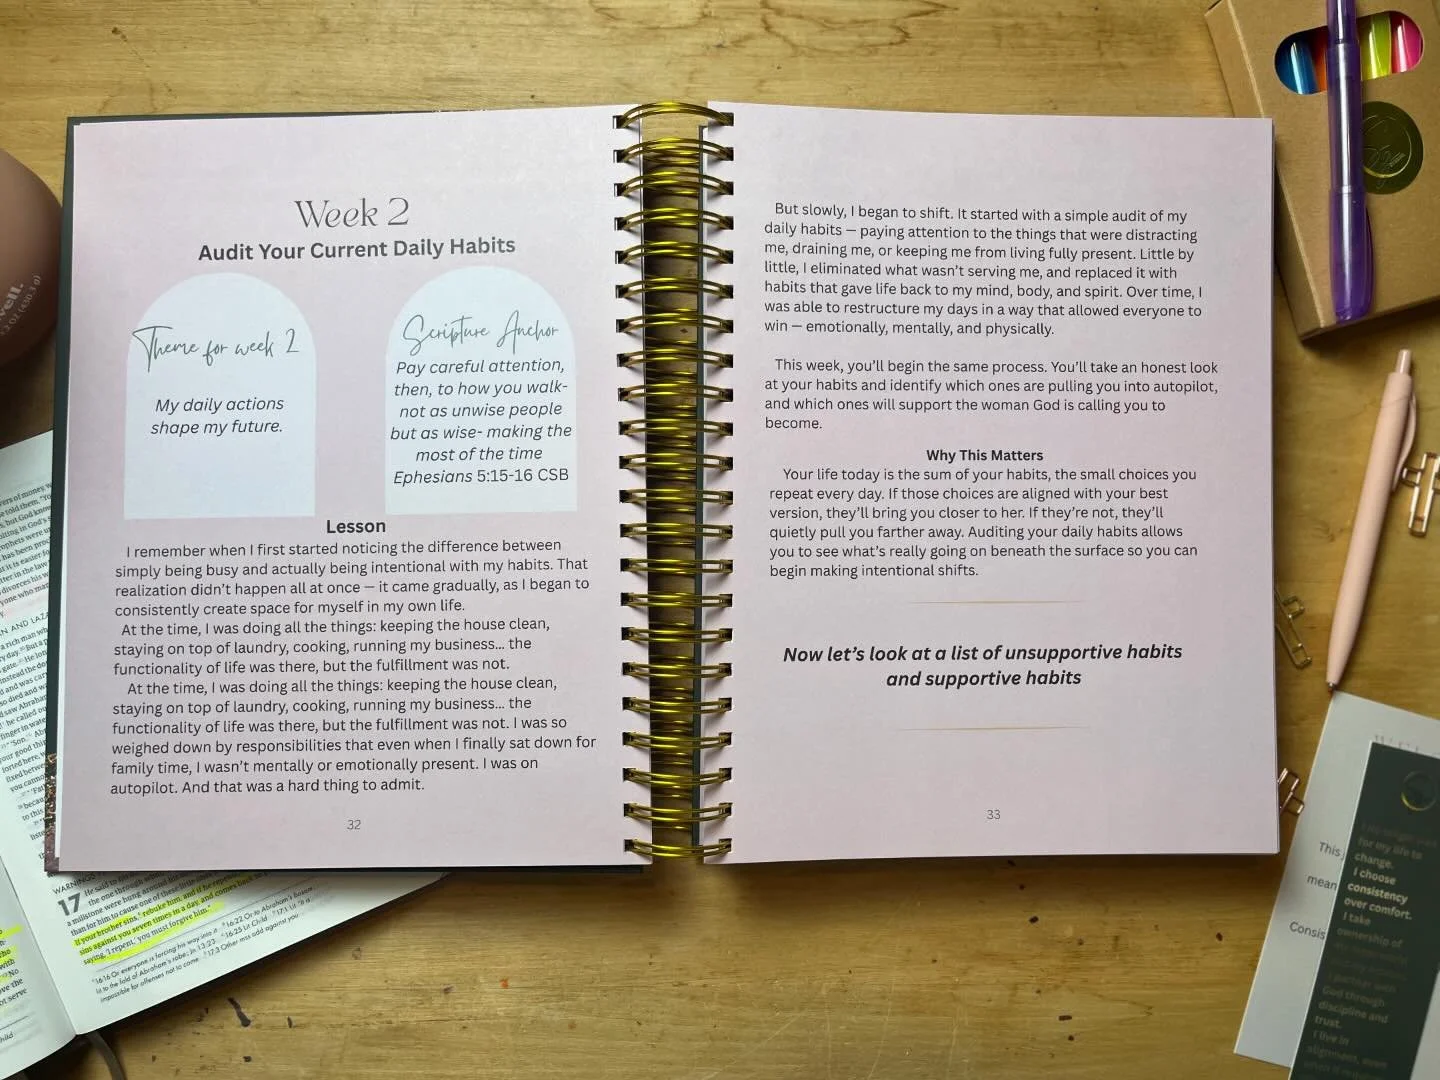 Week 2
Audit Your Current Daily Habits
Theme for week 2
My daily actions
shape my future.
Scripture Anchor
Pay careful attention,
then, to how you walk-
not as unwise people
but as wise- making the
most of the time
Ephesians 5:15-16 CSB
Lesson
I remember when I first started noticing the difference between
simply being busy and actually being intentional with my habits. That
realization didn't happen all at once — it came gradually, as I began to
consistently create space for myself in my own life.
At the time, I was doing all the things: keeping the house clean,
staying on top of laundry, cooking, running my business... the
functionality of life was there, but the fulfillment was not.
At the time, I was doing all the things: keeping the house clean,
staying on top of laundry, cooking, running my business... the
functionality of life was there, but the fulfillment was not. I was so
weighed down by responsibilities that even when I finally sat down for
family time, I wasn't mentally or emotionally present. I was on
autopilot. And that was a hard thing to admit.
32
But slowly, I began to shift. It started with a simple audit of my
daily habits — paying attention to the things that were distracting
me, draining me, or keeping me from living fully present. Little by
little, I eliminated what wasn't serving me, and replaced it with
habits that gave life back to my mind, body, and spirit. Over time, I
was able to restructure my days in a way that allowed everyone to
win — emotionally, mentally, and physically.
This week, you'll begin the same process. You'll take an honest look
at your habits and identify which ones are pulling you into autopilot,
and which ones will support the woman God is calling you to
become.
Why This Matters
Your life today is the sum of your habits, the small choices you
repeat every day. If those choices are aligned with your best
version, they'll bring you closer to her. If they're not, they'll
quietly pull you farther away. Auditing your daily habits allows
you to see what's really going on beneath the surface so you can
begin making intentional shifts.
Now let's look at a list of unsupportive habits
and supportive habits
33
17
if your brother sins, rebuke him, and if he
sins against you seven times in a day, and comes back
saying, 'I repent,' you must forgive him."
This
mean
Consis
for my life to
change.
I choose
consistency
over comfort.
I take
ownership of
God through
discipline and
trust.
I live in
alignment, even